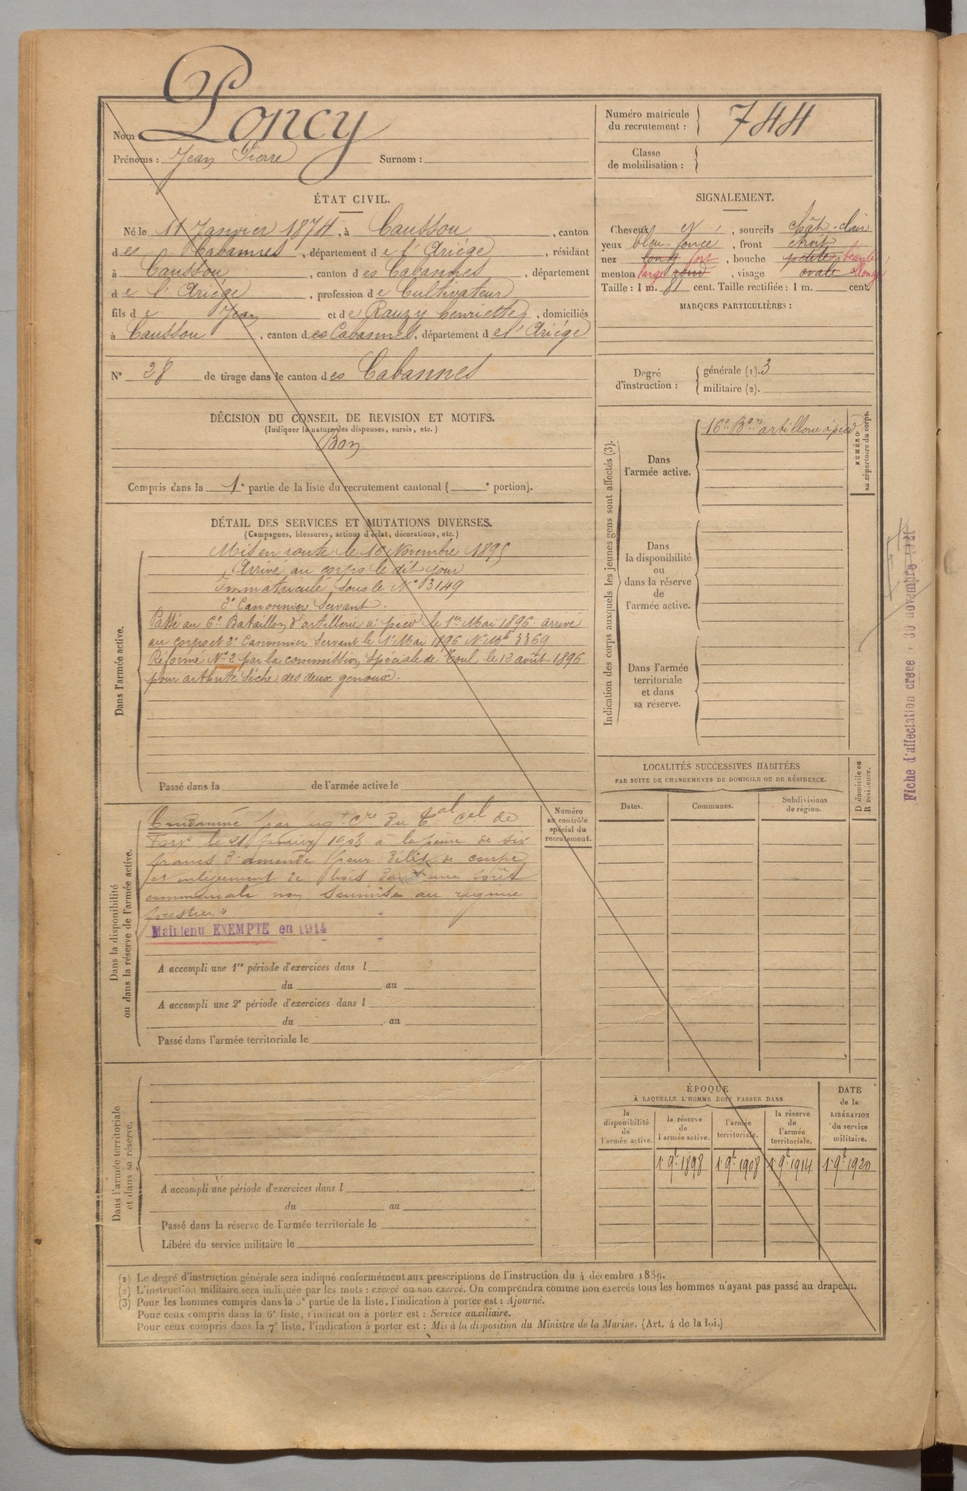 Nom Poncy
Prénoms : Jean Pierre Surnom :
Numéro matricule du recrutement : 744
Classe de mobilisation :
ÉTAT CIVIL.
Né le 11 Janvier 1874, à Caussou, canton
des Cabannes, département de l'Ariège, résidant
à Caussou, canton des Cabannes, département
de l'Ariège, profession de Cultivateur
fils de Jean et de Rauzy henriette, domiciliés
à Caussou, canton des Cabannes, département de l'Ariège
N° 28 de tirage dans le canton des Cabannes
DÉCISION DU CONSEIL DE REVISION ET MOTIFS.
(Indiquer la nature des dispenses, sursis, etc.)
Bon
Compris dans la 1e partie de la liste du recrutement cantonal ( e portion).
DÉTAIL DES SERVICES ET MUTATIONS DIVERSES.
(Campagnes, blessures, actions d'éclat, décorations, etc.)
Dans l'armée active.
Mis en route le 16 Novembre 1895
Arrivé au corps le dit jour
Immatriculé sous le N° 3149
2e Canonnier Servant.
Passé au 6e Bataillon d'artillerie à pied le 1er Mai 1896 arrivé
au corps et 2e Canonnier Servant le 1er Mai 1896 N° Mle 3369
Réformé N° 2 par la commission spéciale de Toul le 13 août 1896
pour arthrite sèche des deux genoux.
Passé dans la de l'armée active le
Dans la disponibilité ou dans la réserve de l'armée active.
Condamné par le
Foix le 21 février 1903 à la peine de six
francs d'amende pour délit de coupe
et enlèvement de bois dans une forêt
communale non soumise au régime
forestier
Maintenu EXEMPTÉ en 1914
Numéro au contrôle spécial du recrutement.
A accompli une 1re période d'exercices dans l
du au
A accompli une 2e période d'exercices dans l
du au
Passé dans l'armée territoriale le
Dans l'armée territoriale et dans sa réserve.
A accompli une période d'exercices dans l
du au
Passé dans la réserve de l'armée territoriale le
Libéré du service militaire le
SIGNALEMENT.
Cheveux et, sourcils chât. clair
yeux bleu foncé, front étroit
nez long fort, bouche petite
menton large rond, visage ovale allongé
Taille : 1 m. 81 cent. Taille rectifiée : 1 m. cent.
MARQUES PARTICULIÈRES :
Degré d'instruction : générale (1). 3
militaire (2).
Indication des corps auxquels les jeunes gens sont affectés (3).
Dans l'armée active.
16e Bon artillerie à pied
NUMÉRO au répertoire du corps.
Dans la disponibilité ou dans la réserve de l'armée active.
Dans l'armée territoriale et dans sa réserve.
Fiche d'affectation créée. 30 novembre
LOCALITÉS SUCCESSIVES HABITÉES
PAR SUITE DE CHANGEMENTS DE DOMICILE OU DE RÉSIDENCE.
Dates. Communes. Subdivisions de région. D. domicile ou R. résidence.
ÉPOQUE
À LAQUELLE L'HOMME DOIT PASSER DANS
DATE de la LIBÉRATION du service militaire.
la disponibilité de l'armée active. la réserve de l'armée active. l'armée territoriale. la réserve de l'armée territoriale.
1 9e 1898 1 9e 1908 1 9e 1914 1 9e 1920
(1) Le degré d'instruction générale sera indiqué conformément aux prescriptions de l'instruction du 4 décembre 1889.
(2) L'instruction militaire sera indiquée par les mots : exercé ou non exercé. On comprendra comme non exercés tous les hommes n'ayant pas passé au drapeau.
(3) Pour les hommes compris dans la 5e partie de la liste, l'indication à porter est : Ajourné.
Pour ceux compris dans la 6e liste, l'indication à porter est : Service auxiliaire.
Pour ceux compris dans la 7e liste, l'indication à porter est : Mis à la disposition du Ministre de la Marine. (Art. 4 de la loi.)